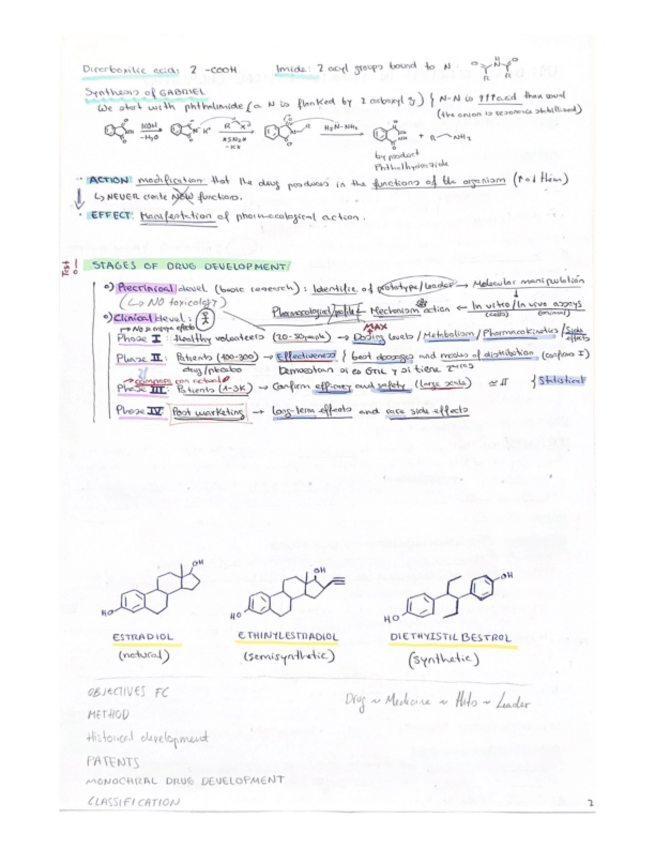 Dicarboxilic acids: 2 -COOH Imide: 2 acyl groups bound to N
Synthesis of GABRIEL
We start with phthalimide (a N is flanked by 2 carboxyl g) { N-N is acid than usual
(the anion is resonance stabilized)
KOH
-H2O
H2N-NH2
R NH2
by product
Phthalhydrazide
ACTION: modification that the drug produces in the functions of the organism
↳ NEVER create NEW functions.
EFFECT: Manifestation of pharmacological action.
Test!
STAGES OF DRUG DEVELOPMENT
o) Preclinical devel. (basic research): Identific of prototype/Leader → Molecular manipulation
(↳ NO toxicology) Pharmacological profile ← Mechanism action ← In vitro/In vivo assays
(cells) (animal)
o) Clinical devel:
MAX
Phase I: Healthy volunteers (20-80 people) → Dosing levels/Metabolism/Pharmacokinetics/Side effects
Phase II: Patients (100-300) → Effectiveness { best dosages and modes of distribution (confirms I)
drug/placebo Demuestran si es útil y si tiene
Phase III: Patients (1-3K) → Confirm efficacy and safety (large scale) ≃ II { Statistical
Phase IV: Post marketing → Long-term effects and rare side effects
OH OH OH
HO HO HO
ESTRADIOL ETHINYLESTRADIOL DIETHYISTILBESTROL
(natural) (semisynthetic) (synthetic)
OBJECTIVES FC
Drug ~ Medicine ~ Hito ~ Leader
METHOD
Historical development
PATENTS
MONOCHRAL DRUG DEVELOPMENT
CLASSIFICATION
2